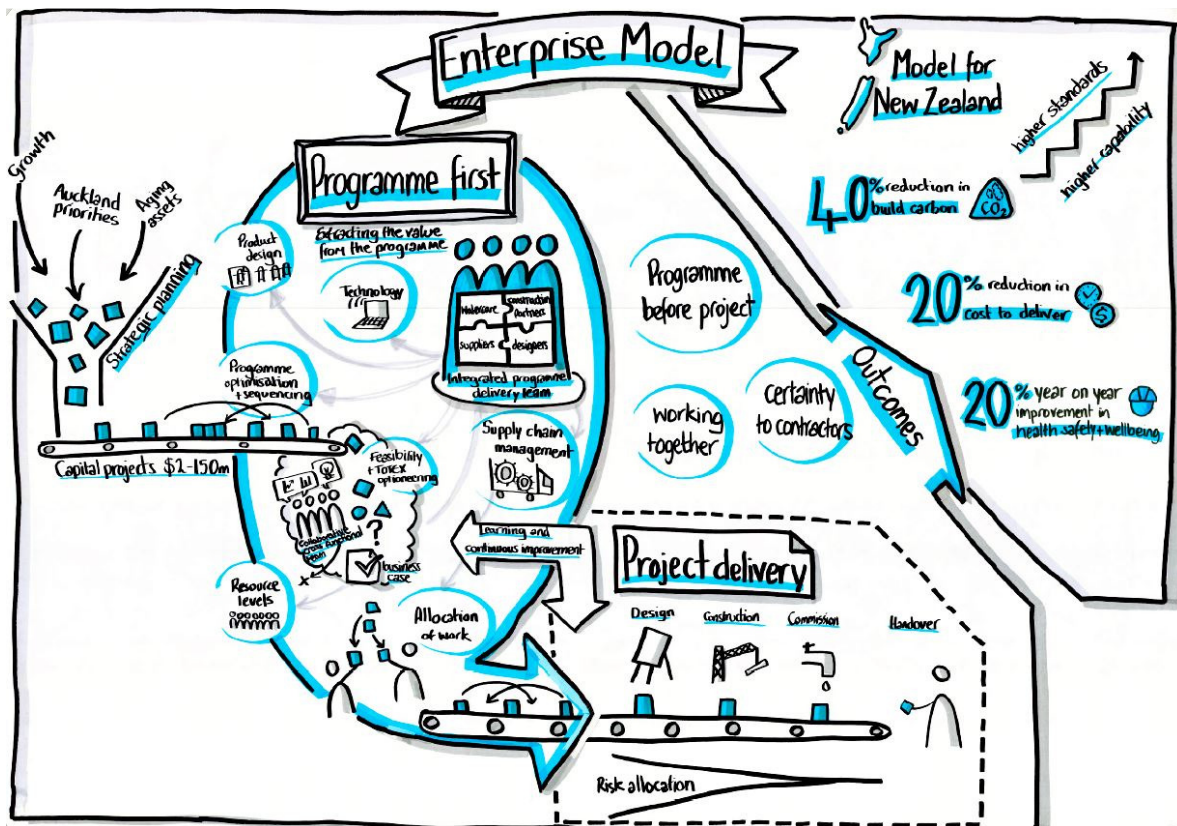 Enterprise Model
Model for
New Zealand
higher standards
higher capability
40% reduction in
build carbon
CO2
20% reduction in
cost to deliver
$
20% year on year
improvement in
health safety + wellbeing
Outcomes
Growth
Auckland
priorities
Aging
assets
Strategic planning
Capital projects $2-150m
Programme first
Extracting the value
from the programme
Product
design
Technology
Watercare
construction
partners
suppliers
designers
Integrated programme
delivery team
Programme
optimisation
+ sequencing
Feasibility
+ Totex
optioneering
Supply chain
management
collaborative
cross functional
team
?
business
case
Resource
levels
Allocation
of work
Learning and
continuous improvement
Programme
before project
working
together
certainty
to contractors
Project delivery
Design
Construction
Commission
Handover
Risk allocation